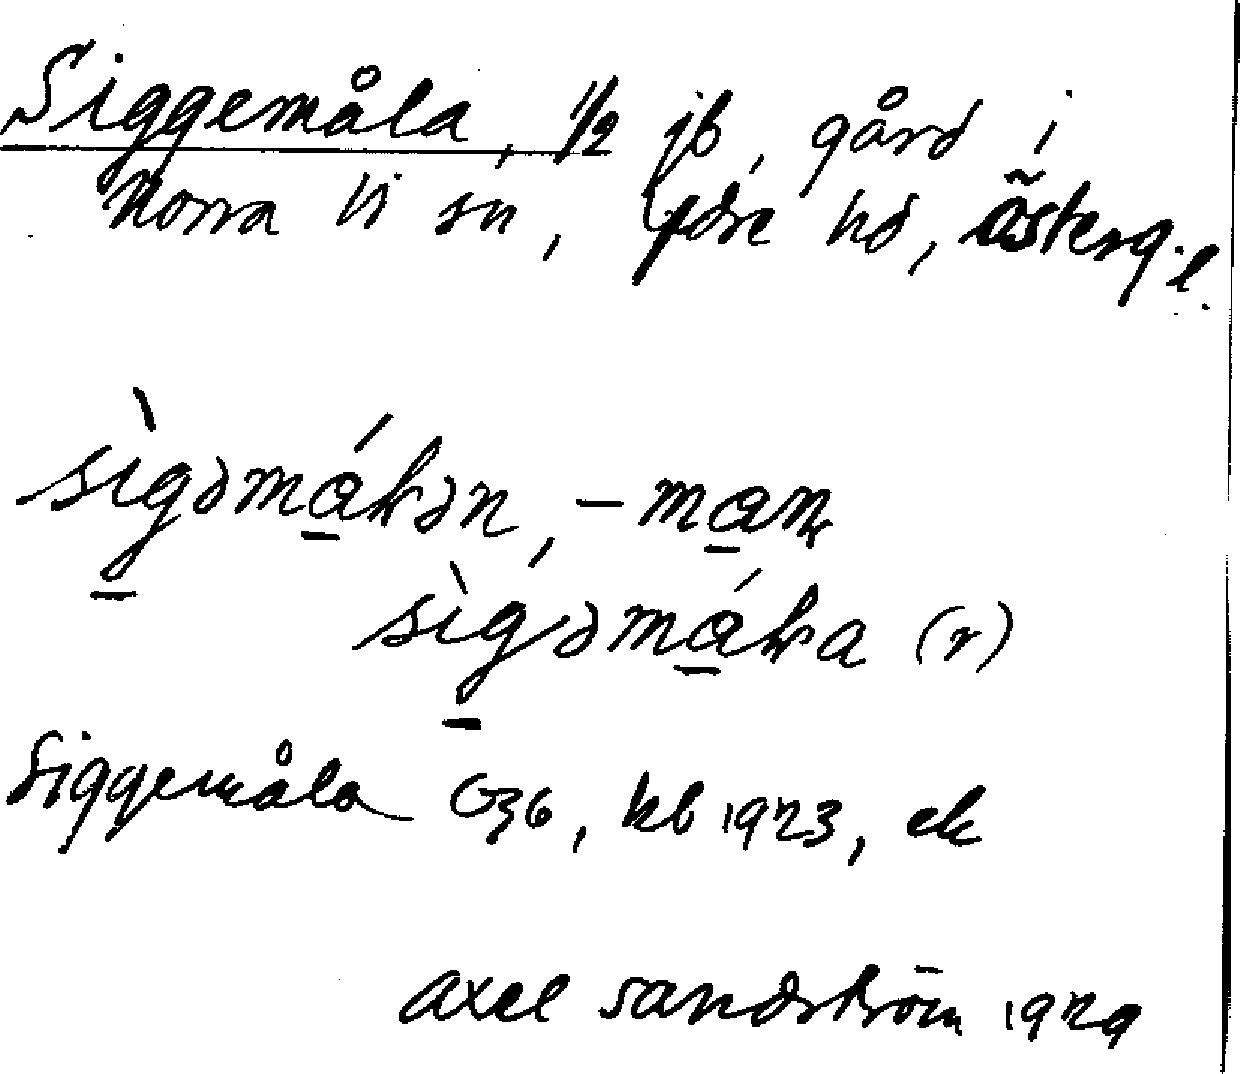 Siggemåla, 1/2 jb, gård i
Norra Vi sn, Ydre hd, Österg. l.
Siggemåla G36, kb 1923, ek
Axel Sandström 1929